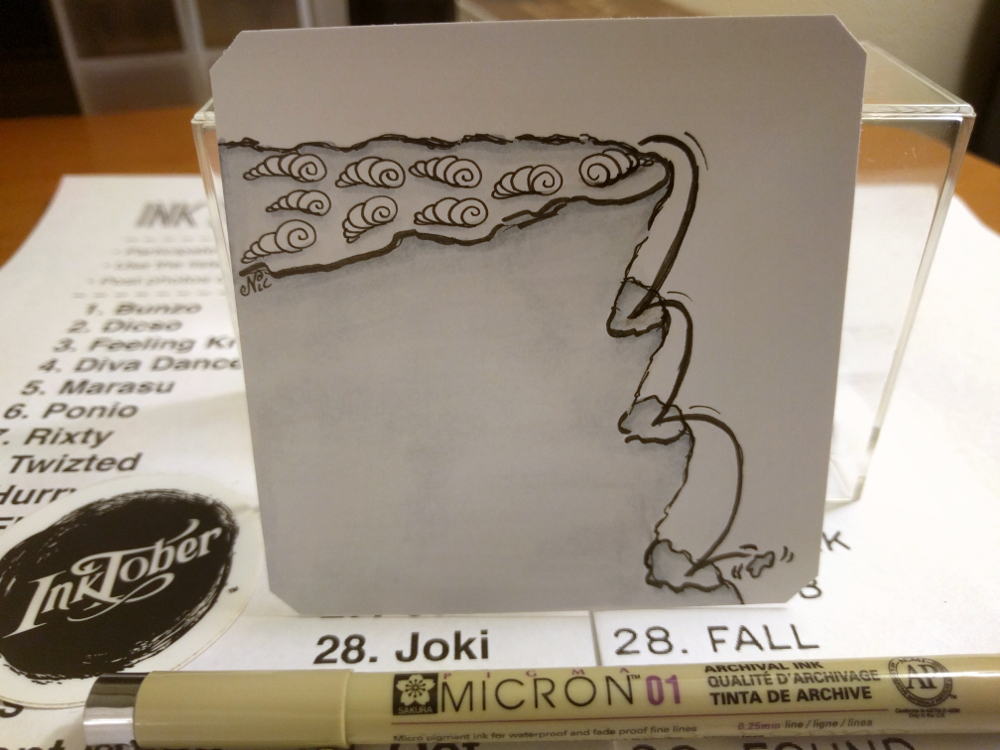 INK
1. Bunzo
2. Dicso
3. Feeling
4. Diva Dance
5. Marasu
6. Ponio
7. Rixty
Twizted
Nic
InkTober
28. Joki
28. FALL
SAKURA
PIGMA
MICRON™ 01
ARCHIVAL INK
QUALITÉ D'ARCHIVAGE
TINTA DE ARCHIVE
AP
Micro pigment ink for waterproof and fade proof fine lines
0.25mm line / ligne / línea